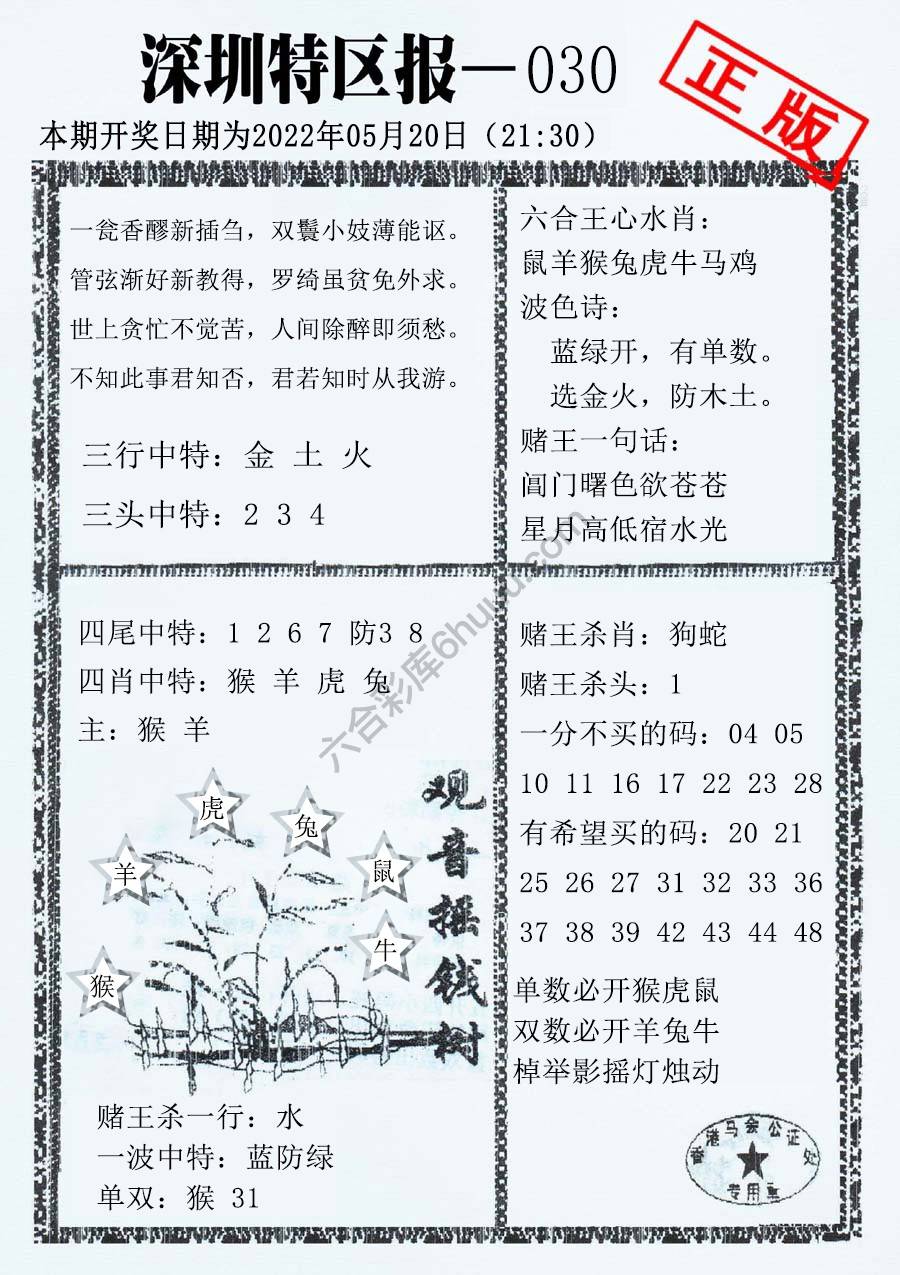 深圳特区报—030
正版
本期开奖日期为2022年05月20日（21:30）
一瓮香醪新插刍，双鬟小妓薄能讴。
管弦渐好新教得，罗绮虽贫免外求。
世上贪忙不觉苦，人间除醉即须愁。
不知此事君知否，君若知时从我游。
三行中特：金 土 火
三头中特：2 3 4
六合王心水肖：
鼠羊猴兔虎牛马鸡
波色诗：
蓝绿开，有单数。
选金火，防木土。
赌王一句话：
阊门曙色欲苍苍
星月高低宿水光
四尾中特：1 2 6 7 防3 8
四肖中特：猴 羊 虎 兔
主：猴 羊
虎
兔
羊
鼠
牛
猴
观音摇钱树
赌王杀一行：水
一波中特：蓝防绿
单双：猴 31
赌王杀肖：狗蛇
赌王杀头：1
一分不买的码：04 05
10 11 16 17 22 23 28
有希望买的码：20 21
25 26 27 31 32 33 36
37 38 39 42 43 44 48
单数必开猴虎鼠
双数必开羊兔牛
棹举影摇灯烛动
香港马会公证处
专用章
六合彩库6huuu.com